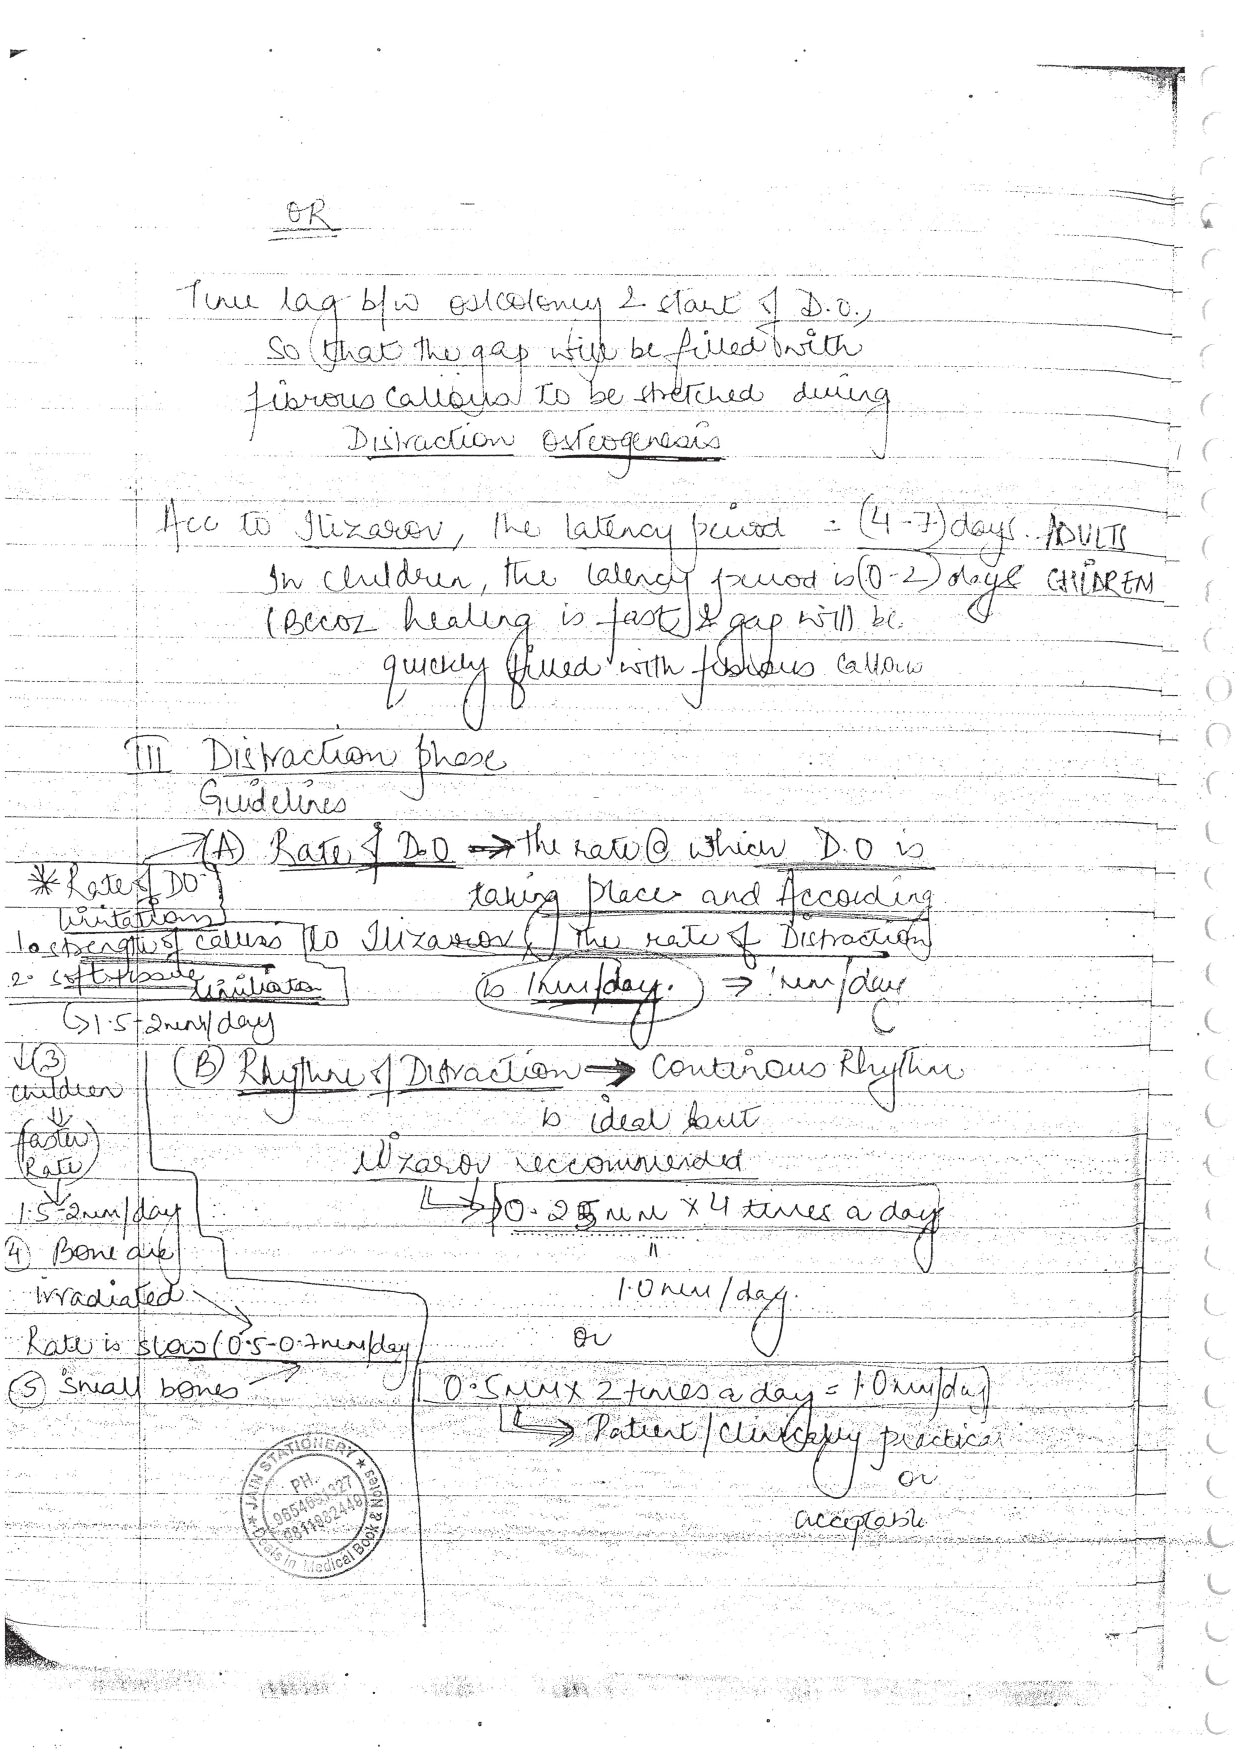 OR
Time lag b/w osteotomy & start of D.O.,
So that the gap will be filled with
fibrous callous to be stretched during
Distraction osteogenesis
Acc to Ilizarov, the latency period = (4-7) days. ADULTS
In children, the latency period is (0-2) days CHILDREN
(Becoz healing is fast) & gap will be
quickly filled with fibrous callous
III Distraction phase
Guidelines
(A) Rate of D.O → the rate @ which D.O is
taking place and According
to Ilizarov, the rate of Distraction
is 1mm/day. ⇒ 1mm/day
* Rate of DO
limitations
1. strength of callus
2. soft tissue
limitation
↳ 1.5-2mm/day
↓ (3)
children
⇓
faster
Rate
↓
1.5-2mm/day
(4) Bone are
irradiated
Rate is slow (0.5-0.7mm/day
(5) Small bones
(B) Rhythm of Distraction → Continous Rhythm
is ideal but
Ilizarov reccommended
↳ 0.25mm x 4 times a day
=
1.0mm/day.
or
0.5mm x 2 times a day = 1.0mm/day
↳ Patient/Clinically practical
or
acceptable
★ JAIN STATIONERY ★
PH.
9811982448
Deals in Medical Book & Notes